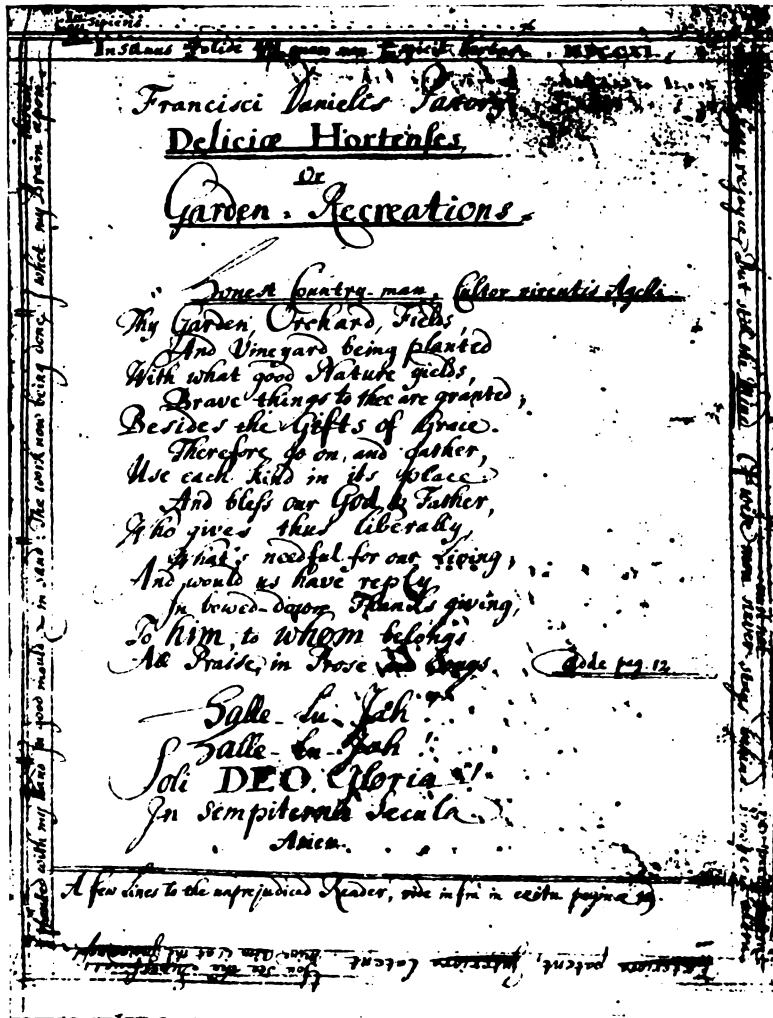 Insipiens
Insanus stolide quem non Explicit hortus. MDCCXI.
Francisci Danielis Pastory
Deliciæ Hortenses
Or
Garden-Recreations.
Honest Country-man, Cultor virentis Agelli.
Thy Garden, Orchard, Fields,
And Vineyard being planted
With what good Nature yields,
Brave things to thee are granted;
Besides the Gifts of Grace.
Therefore go on, and Gather,
Use each kind in its place
And bless our God & Father,
Who gives thus liberally,
What's needful for our Living;
And would us have reply
In bowed-down Thanks giving,
To him, to whom belongs
All Praise, in Prose and Songs. Adde pag. 12
Halle-Lu-Jah!
Halle-Lu-Jah!
Soli DEO Gloria!
In Sempiterna Secula.
Amen.
A few Lines to the unprejudiced Reader, vide infra in exitu paginæ
I planted with my Hand in good mould in Sand: The work now being done, I whet my Brain upon
rejoyce, But still the Mind of wise men never stays behind
Exteriora patent, Interiora latent.